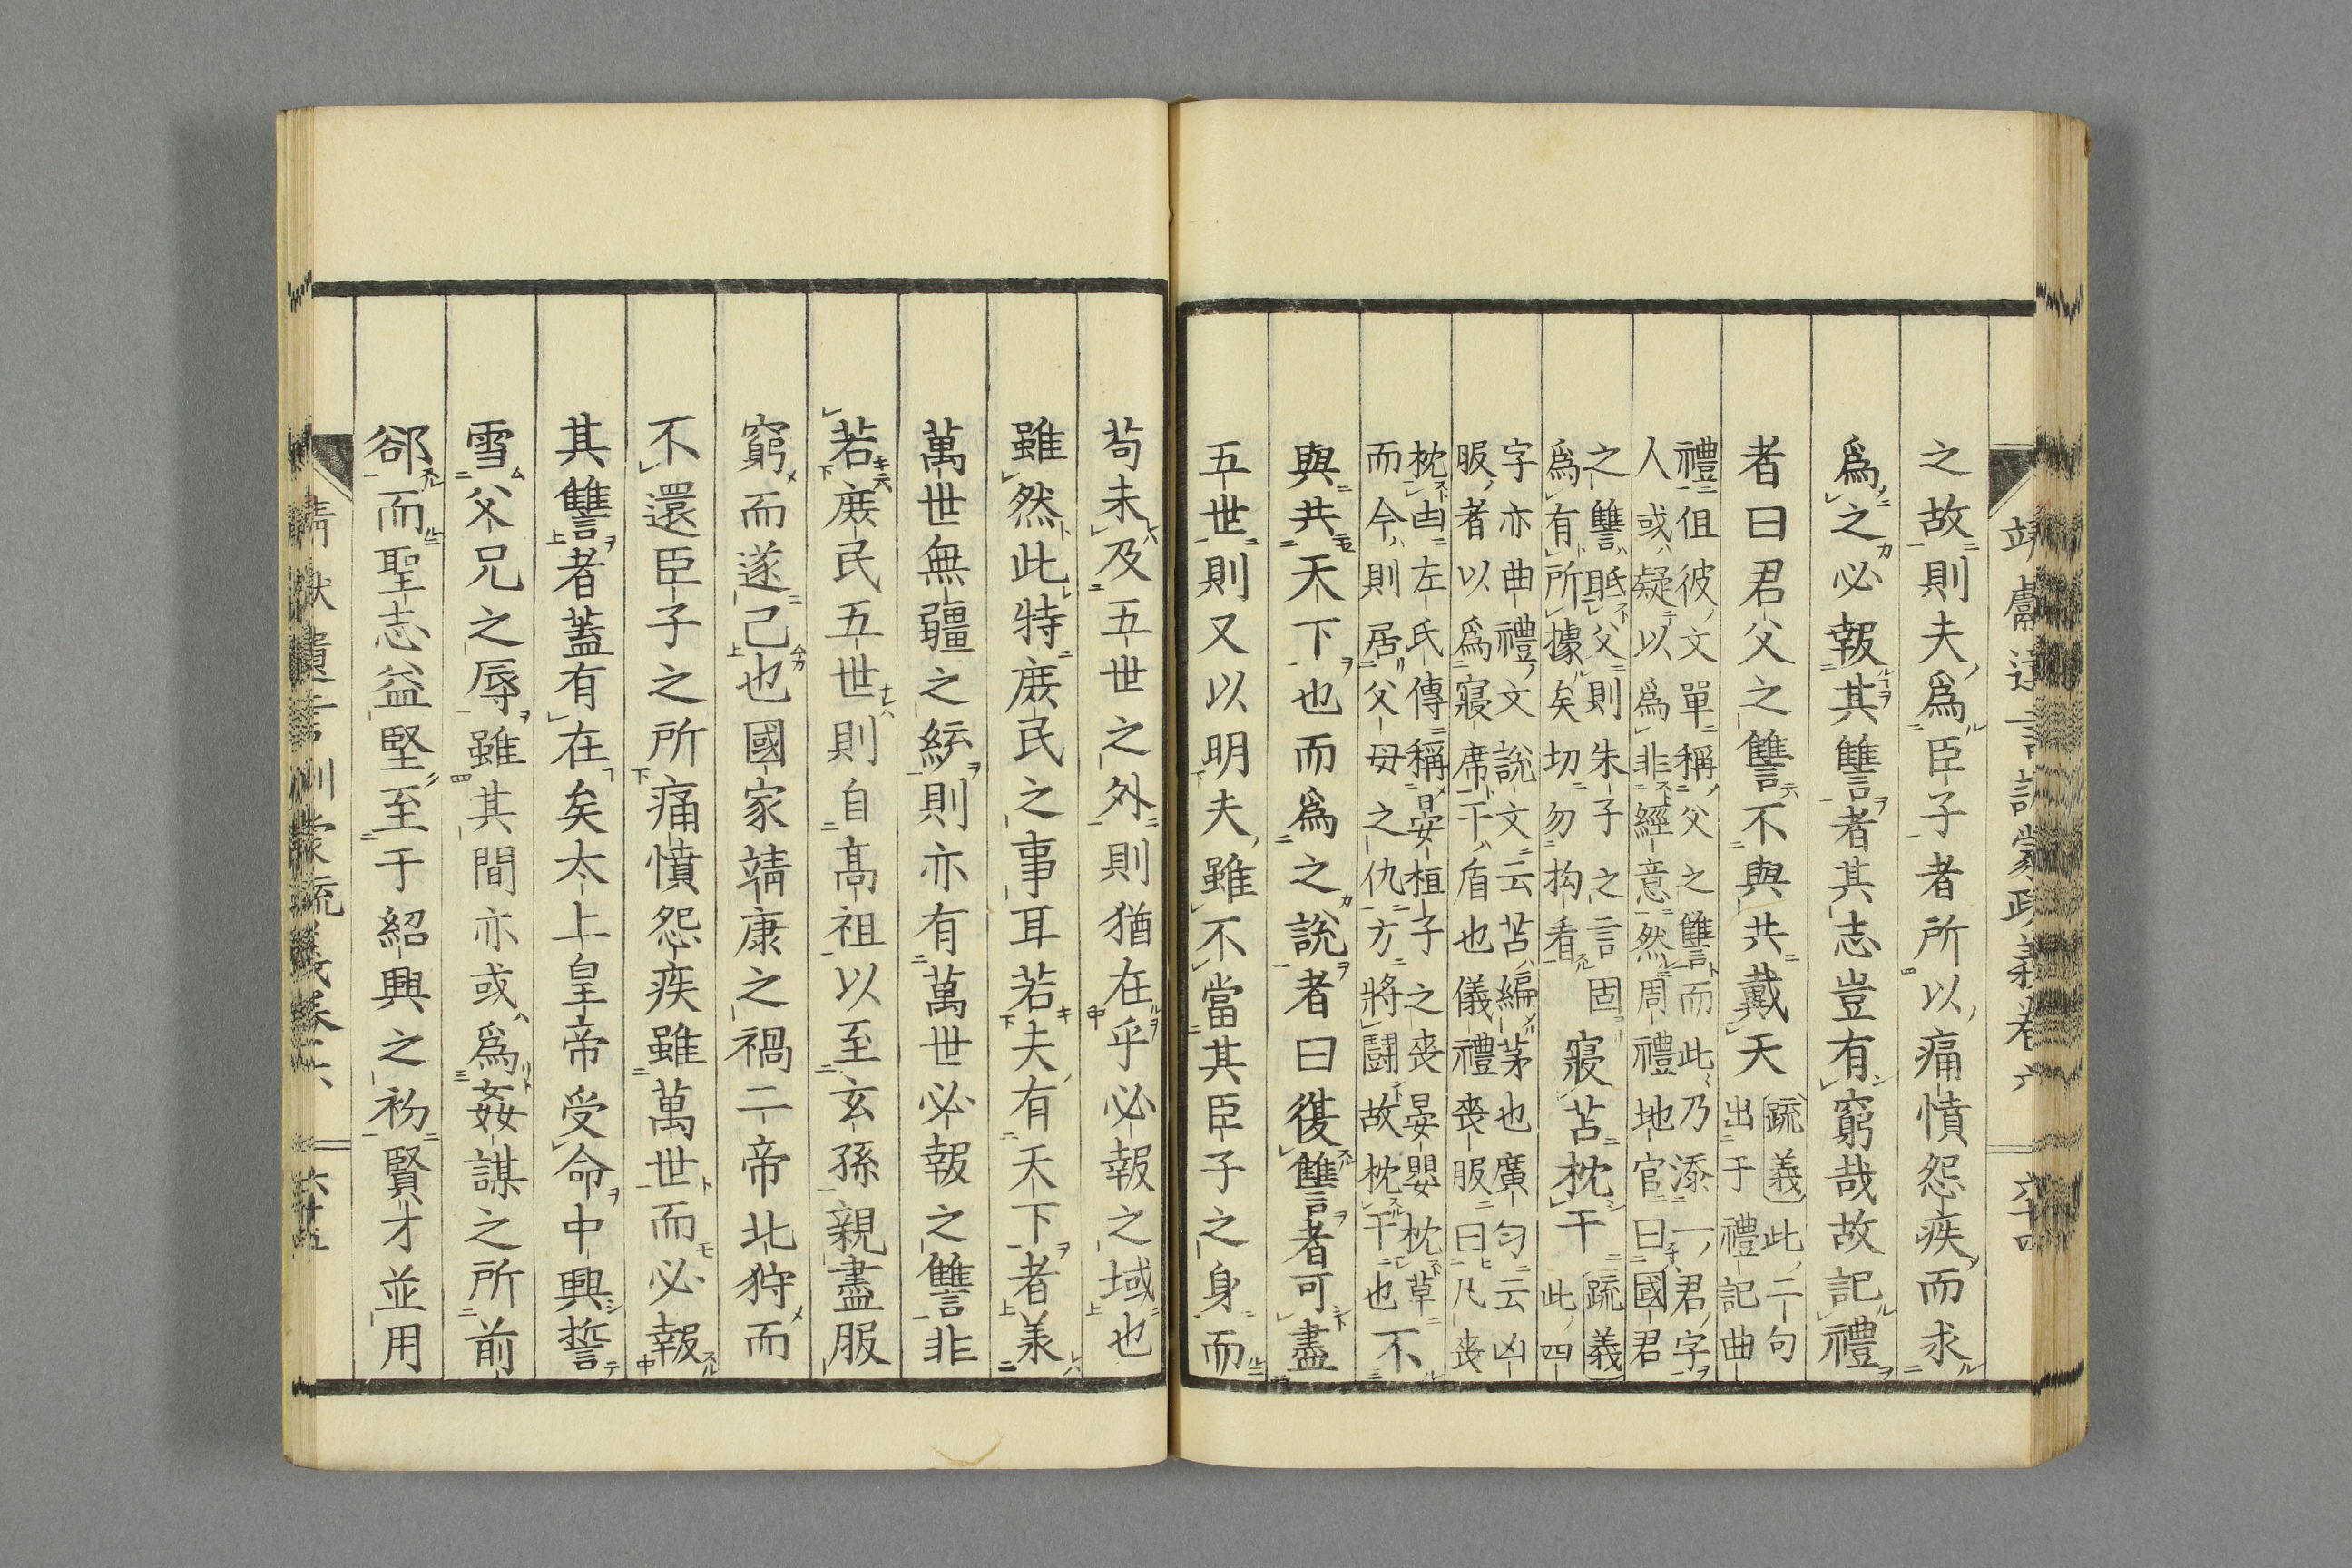 靖獻遺言訓蒙疏義卷六　六十四
之故則夫爲臣子者所以痛憤怨疾而求
爲之必報其讐者其志豈有窮哉故記禮
者曰君父之讐不與共戴天
疏義 此二句
出于禮記曲
禮但彼文單稱父之讐而此乃添一君字
人或疑以爲非經意然周禮地官曰國君
之讐眡父則朱子之言固
爲有所據矣切勿拘看
寢苫枕干
疏義
此四
字亦曲禮文説文云苫編茅也廣匀云凶
服者以爲寢席干盾也儀禮喪服曰凡喪
枕凷左氏傳稱晏桓子之喪晏嬰枕草
而今則居父母之仇方將鬪故枕干也
不
與共天下也而爲之説者曰復讐者可盡
五世則又以明夫雖不當其臣子之身而
苟未及五世之外則猶在乎必報之域也
雖然此特庶民之事耳若夫有天下者羕
萬世無疆之統則亦有萬世必報之讐非
若庶民五世則自髙祖以至玄孫親盡服
窮而遂已也國家靖康之禍二帝北狩而
不還臣子之所痛憤怨疾雖萬世而必報
其讐者蓋有在矣太上皇帝受命中興誓
雪父兄之辱雖其間亦或爲姦謀之所前
郤而聖志益堅至于紹興之初賢才並用
靖獻遺言訓蒙疏義卷六　六十五